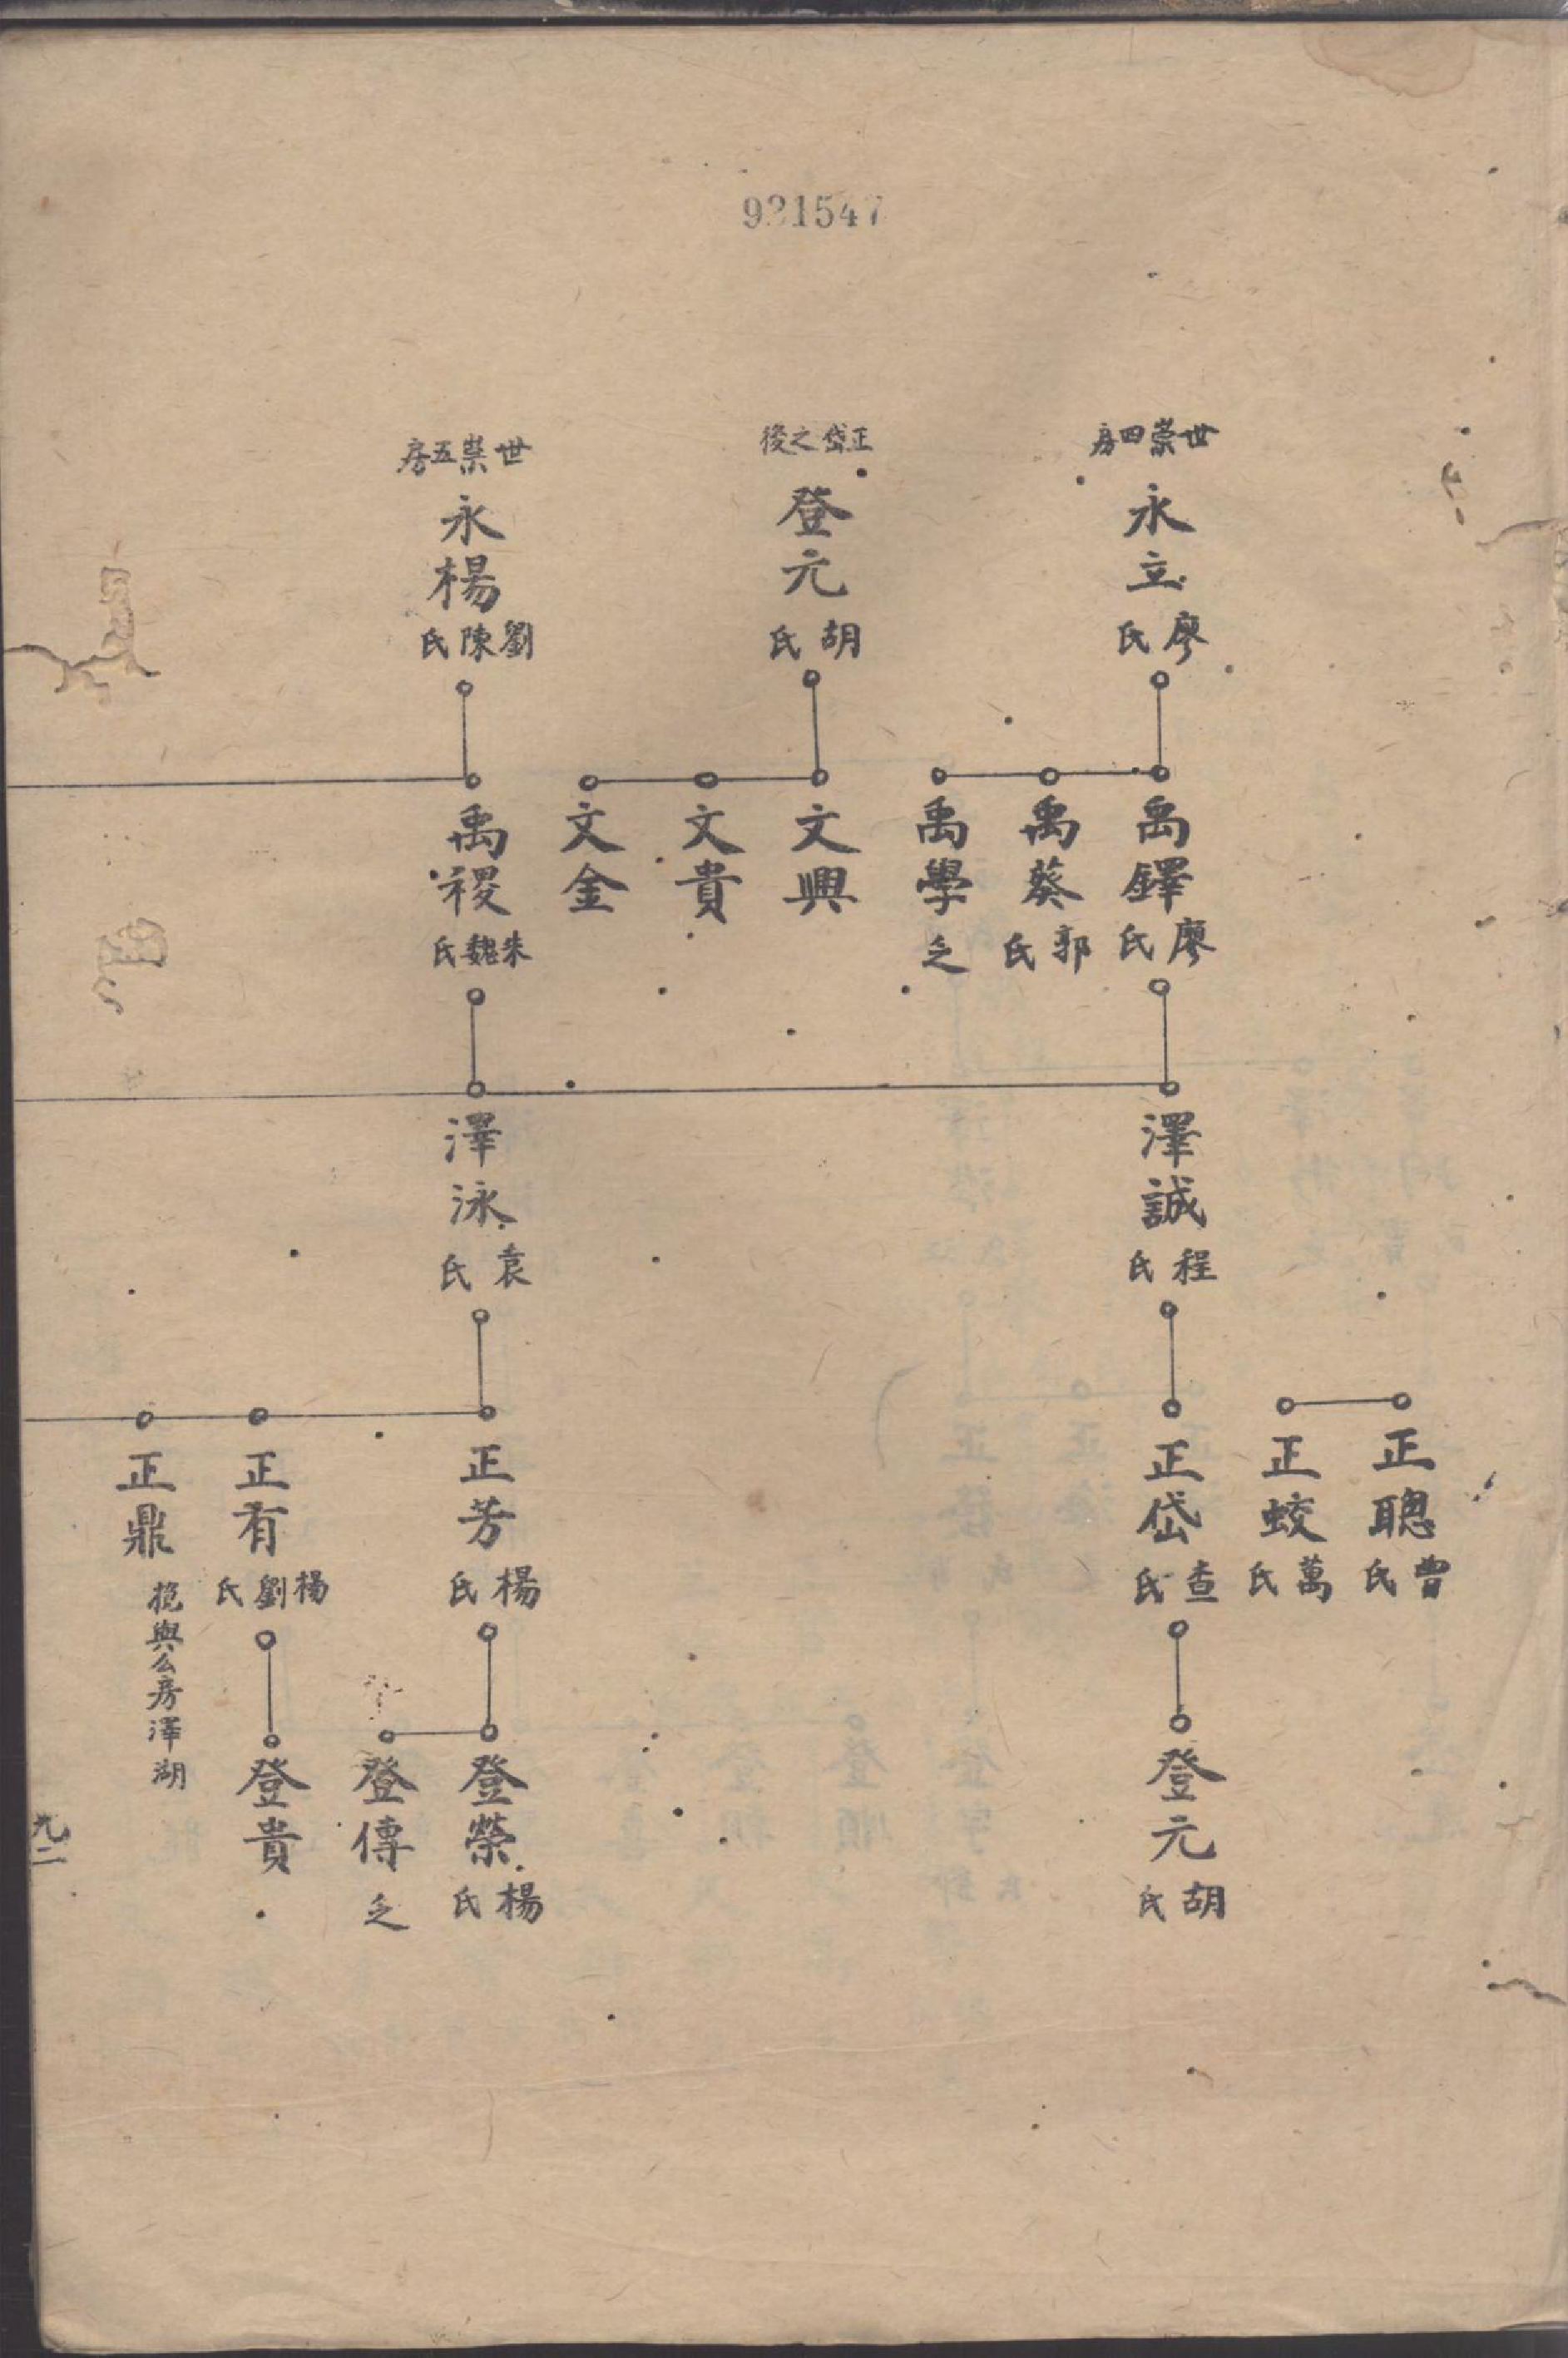 921547
世崇四房
永立
廖氏
正岱之後
登元
胡氏
世崇五房
永楊
劉陳氏
禹鐸
廖氏
禹葵
郭氏
禹學
乏
文興
文貴
文金
禹稷
朱魏氏
澤誠
程氏
澤泳
袁氏
正聰
曹氏
正蛟
萬氏
正岱
查氏
正芳
楊氏
正有
楊劉氏
正鼎
與公房澤湖
登元
胡氏
登榮
楊氏
登傳
乏
登貴
九二